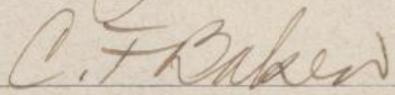 C. F Baker